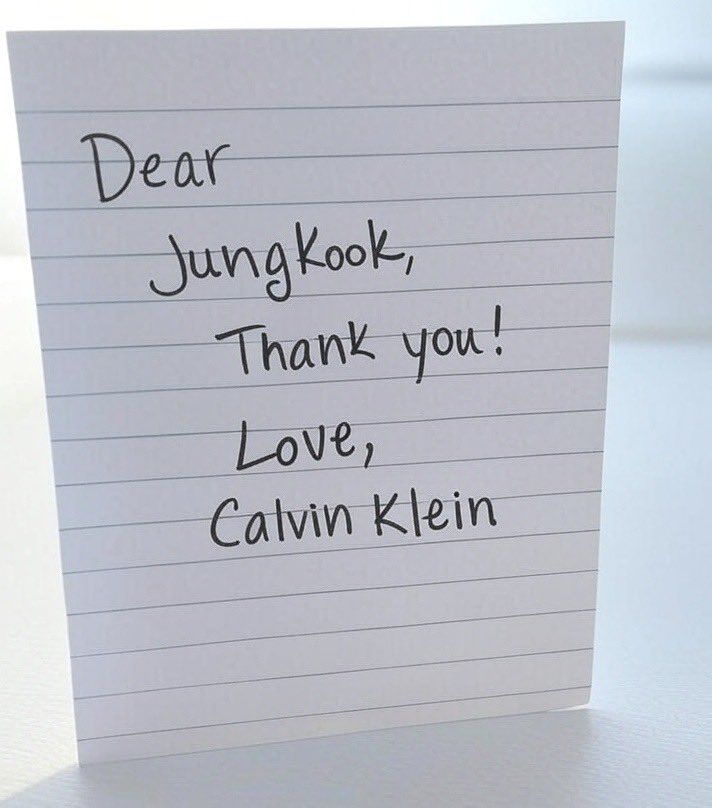 Dear
Jungkook,
Thank you!
Love,
Calvin Klein